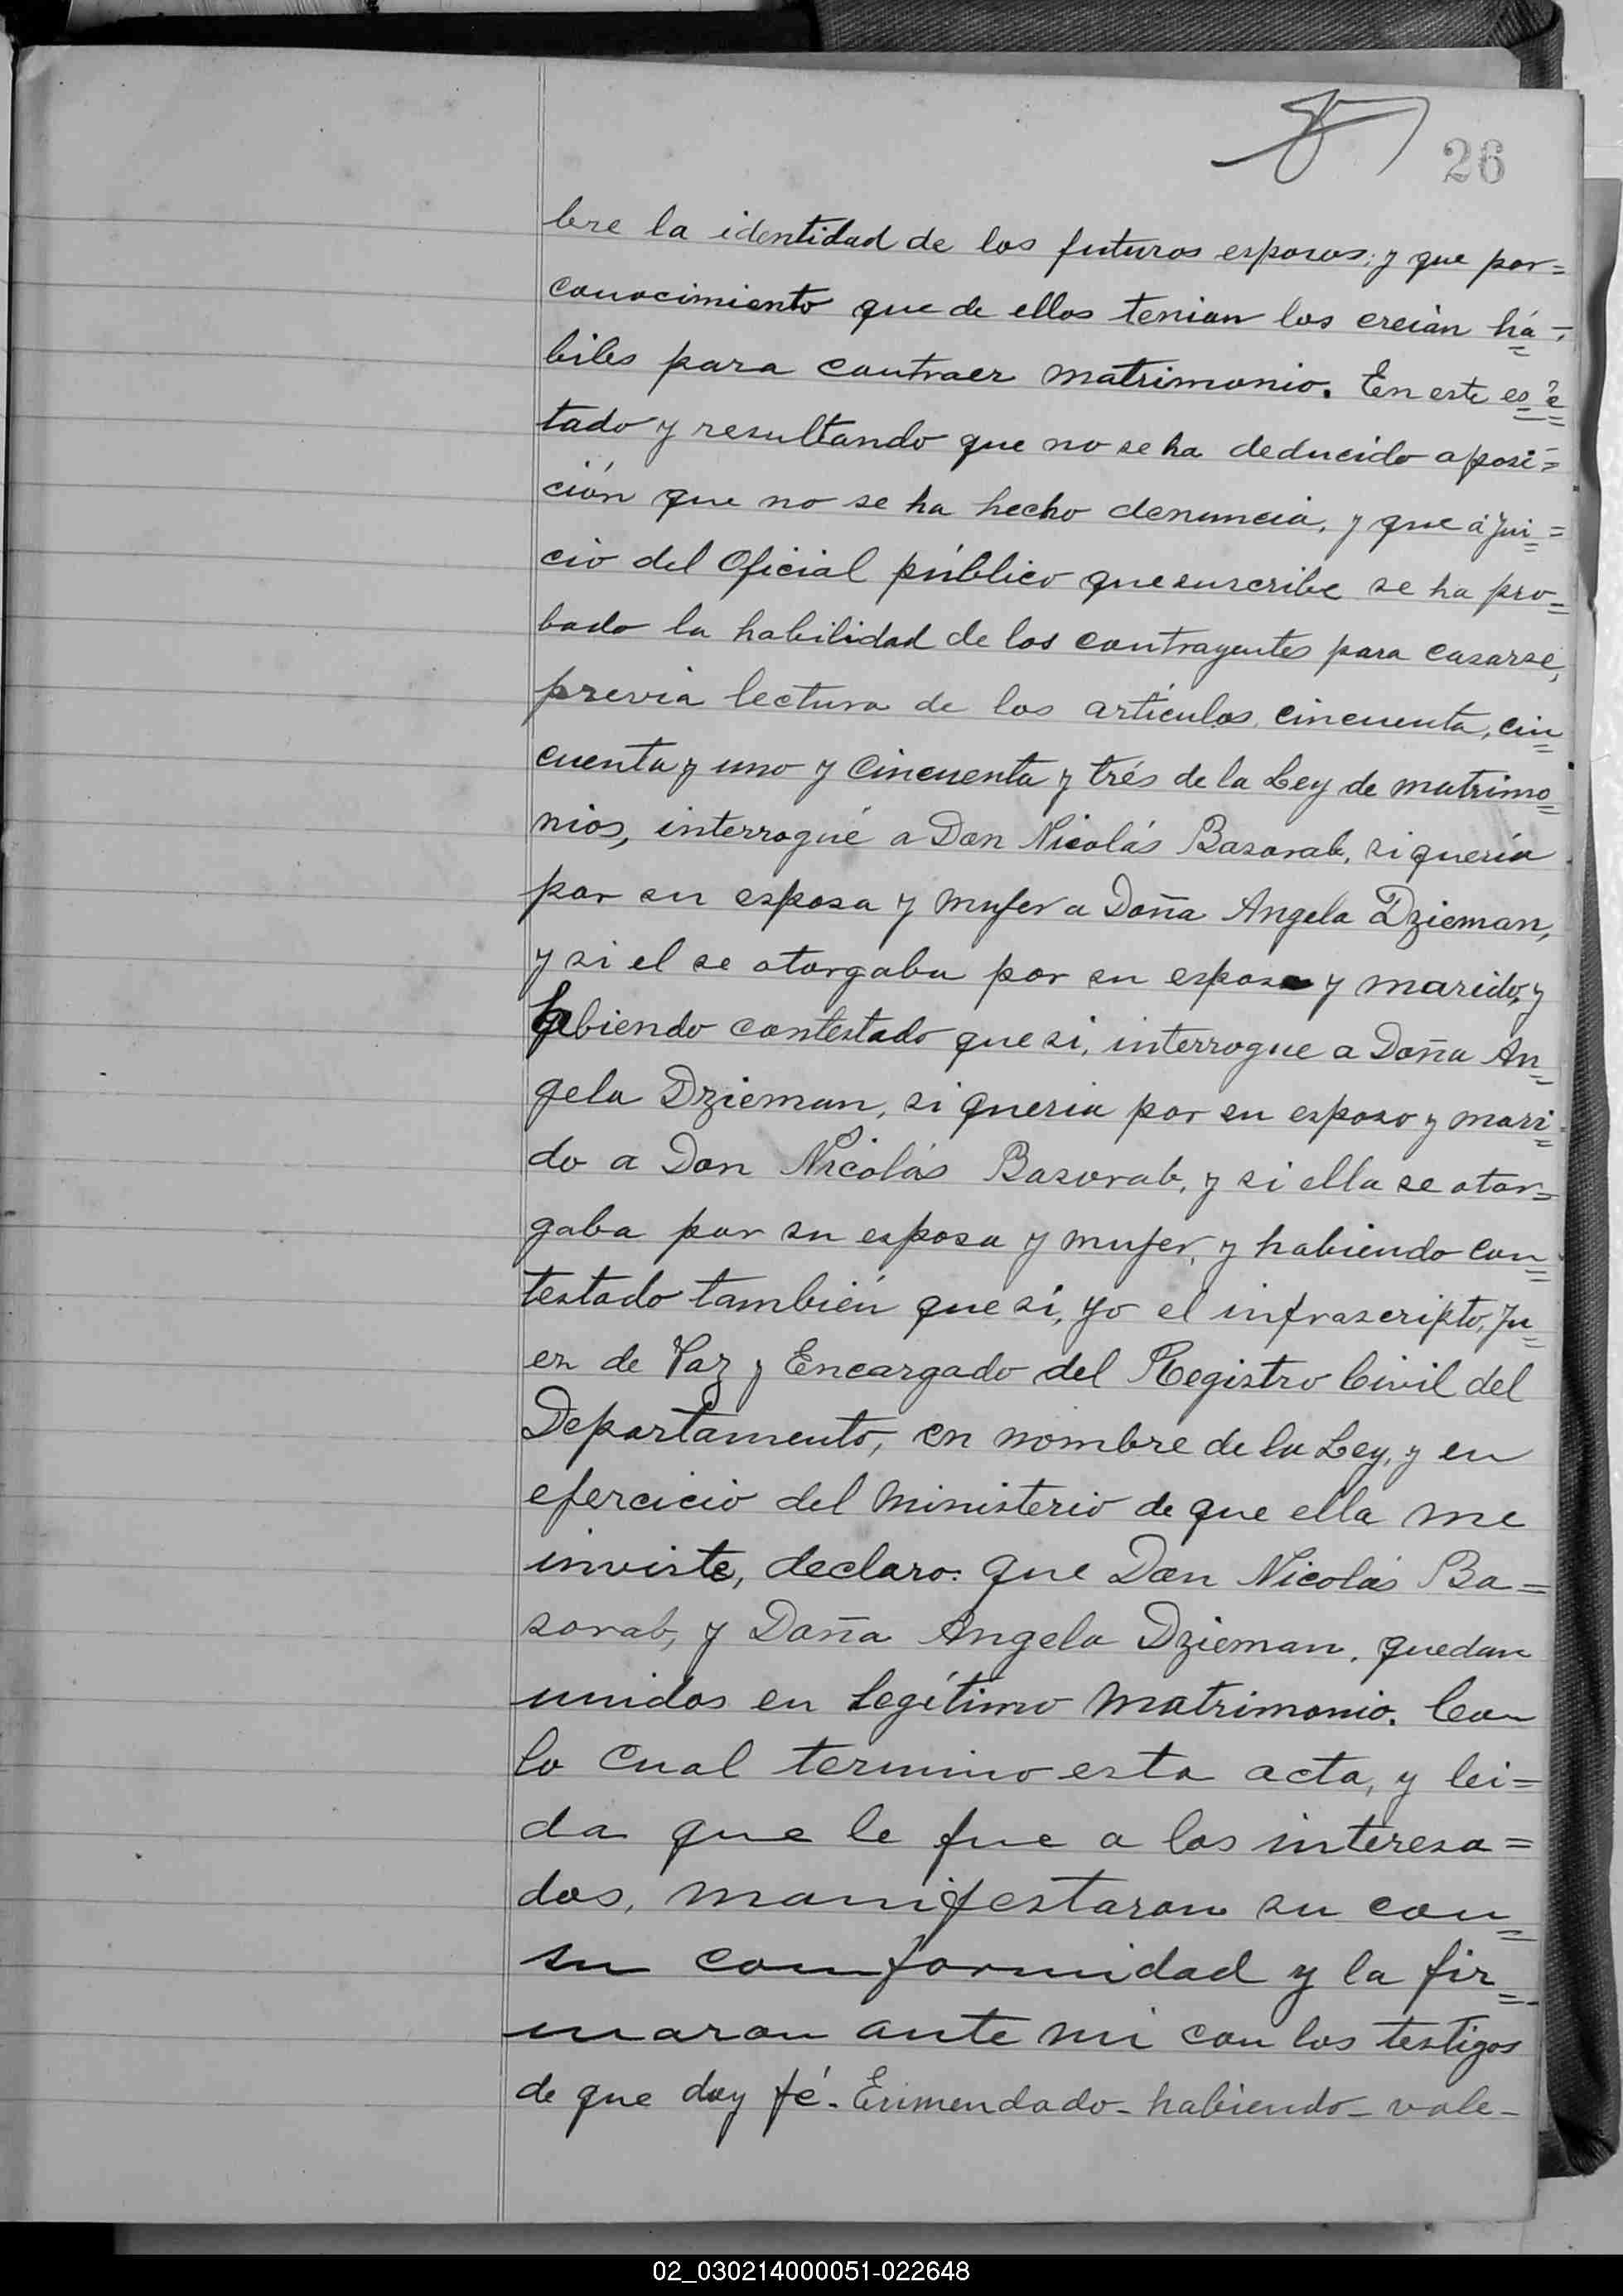 26
bre la identidad de los futuros esposos; y que por=
conocimiento que de ellos tenian los creian há=
biles para contraer matrimonio. En este es=
tado y resultando que no se ha deducido oposi=
ción que no se ha hecho denuncia, y que á jui=
cio del Oficial público que suscribe se ha pro=
bado la habilidad de los contrayentes para casarse,
previa lectura de los artículos, cincuenta, cin=
cuenta y uno y cincuenta y trés de la Ley de matrimo=
nios, interrogué a Don Nicolás Basorab, si quería
por su esposa y mujer a Doña Angela Dzieman,
y si el se otorgaba por su esposo y marido, y
habiendo contestado que si, interrogue a Doña An=
gela Dzieman, si queria por su esposo y mari=
do a Don Nicolás Basorab, y si ella se otor=
gaba por su esposa y mujer, y habiendo con=
testado también que si, yo el infrascripto, Ju=
ez de Paz y Encargado del Registro Civil del
Departamento, en nombre de la Ley, y en
ejercicio del Ministerio de que ella me
inviste, declaro: que Don Nicolás Ba=
sorab, y Doña Angela Dzieman, quedan
unidos en legítimo matrimonio. Con
lo cual termino esta acta, y lei=
da que le fue a los interesa=
dos, manifestaron su con=
su conformidad y la fir=
maron ante mi con los testigos
de que doy fé. Enmendado - habiendo - vale -
02_030214000051-022648